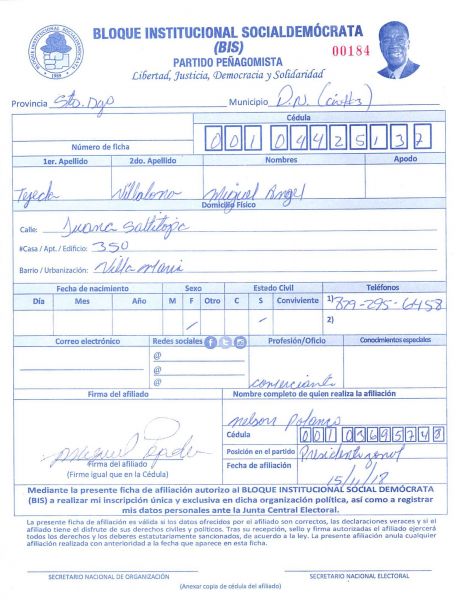 BLOQUE INSTITUCIONAL SOCIALDEMÓCRATA
BLOQUE INSTITUCIONAL SOCIALDEMÓCRATA
(BIS)
00184
PARTIDO PEÑAGOMISTA
Libertad, Justicia, Democracia y Solidaridad
Provincia Sto. Dgo Municipio D.N.
Cédula
Número de ficha 001 0442513 7
1er. Apellido 2do. Apellido Nombres Apodo
Tejeda Villalona Miguel Angel
Domicilio Físico
Calle: Juana Saltitopa
#Casa / Apt. / Edificio: 350
Barrio / Urbanización: Villa Maria
Fecha de nacimiento Sexo Estado Civil Teléfonos
Día Mes Año M F Otro C S Conviviente 1) 829-295-6458
2)
Correo electrónico Redes sociales Profesión/Oficio Conocimientos especiales
@
@
@
comerciante
Firma del afiliado Nombre completo de quien realiza la afiliación
Nelson Polanco
Cédula 001 0369574 8
Posición en el partido Presidente zonal
Firma del afiliado
(Firme igual que en la Cédula)
Fecha de afiliación 15/4/18
Mediante la presente ficha de afiliación autorizo al BLOQUE INSTITUCIONAL SOCIAL DEMÓCRATA
(BIS) a realizar mi inscripción única y exclusiva en dicha organización política, así como a registrar
mis datos personales ante la Junta Central Electoral.
La presente ficha de afiliación es válida si los datos ofrecidos por el afiliado son correctos, las declaraciones veraces y si el
afiliado tiene el disfrute de sus derechos civiles y políticos. Tras su recepción, sello y firma autorizadas el afiliado ejercerá
todos los derechos y los deberes estatutariamente sancionados, de acuerdo a la ley. La presente afiliación anula cualquier
afiliación realizada con anterioridad a la fecha que aparece en esta ficha.
SECRETARIO NACIONAL DE ORGANIZACIÓN SECRETARIO NACIONAL ELECTORAL
(Anexar copia de cédula del afiliado)